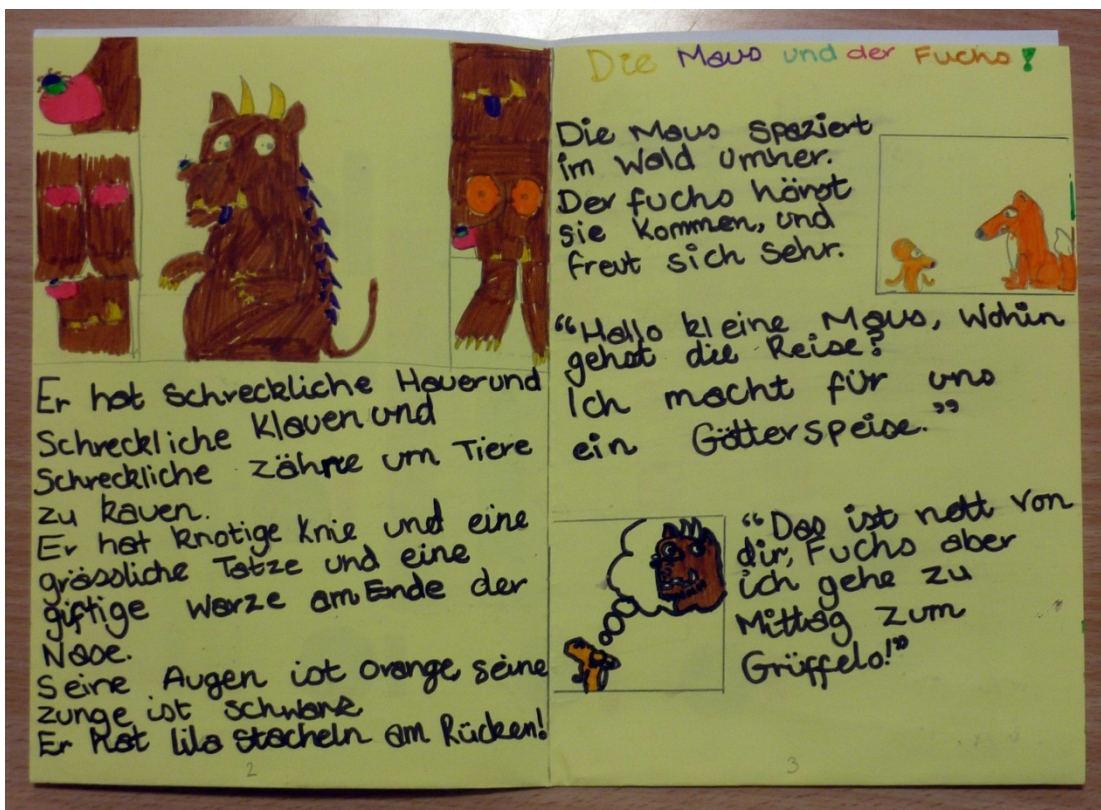 Er hat schreckliche Hauer und
Schreckliche Klauen und
Schreckliche Zähne um Tiere
zu kauen.
Er hat knotige Knie und eine
grässliche Tatze und eine
giftige Warze am Ende der
Nase.
Seine Augen ist orange, seine
zunge ist schwarz
Er hat lila Stacheln am Rücken!
2
Die Maus und der Fuchs!
Die Maus spaziert
im Wald umher.
Der fuchs hörst
sie kommen, und
freut sich sehr.
“Hallo kleine Maus, wohin
gehst die Reise?
Ich macht für uns
ein Götterspeise.”
“Das ist nett von
dir, Fuchs aber
ich gehe zu
Mittag zum
Grüffelo!”
3